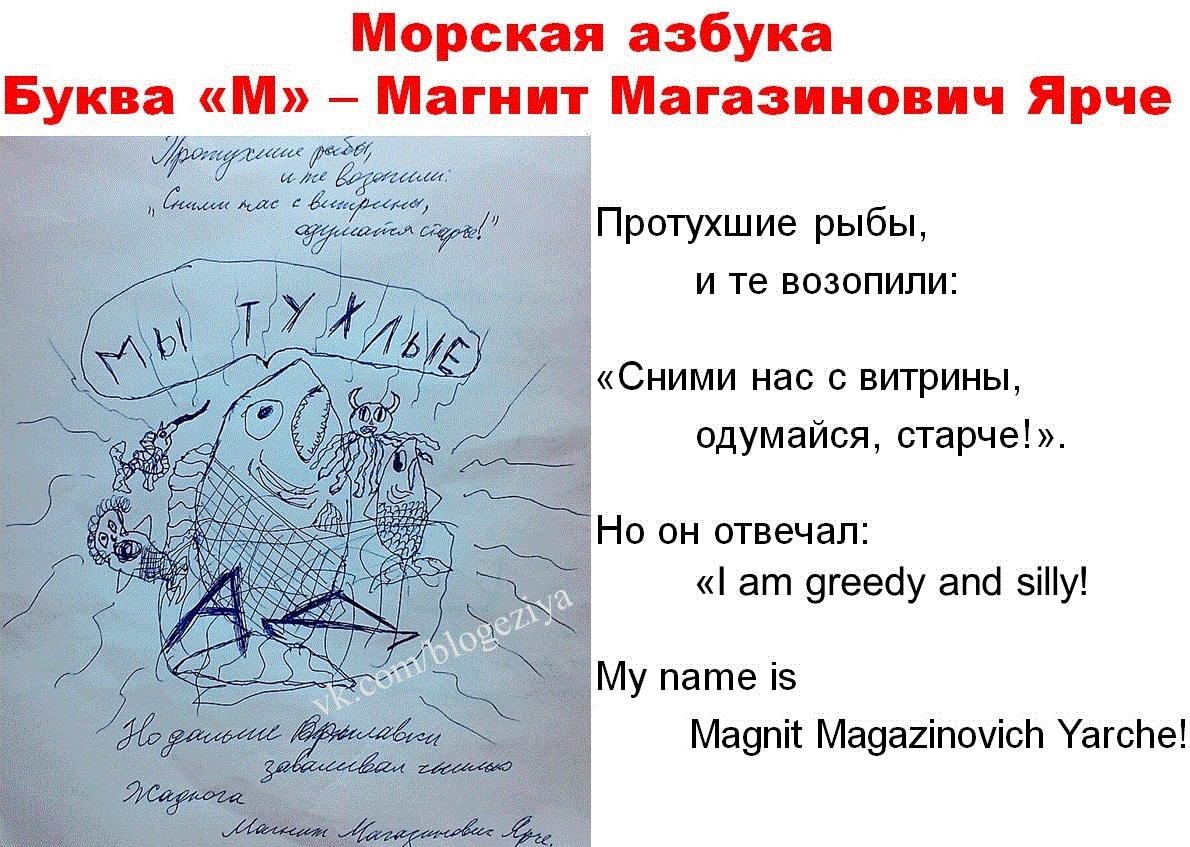 Морская азбука
Буква «М» – Магнит Магазинович Ярче
Протухшие рыбы,
и те возопили:
„Сними нас с витрины,
одумайся старче!"
МЫ ТУХЛЫЕ
АД
vk.com/blogeziya
Но дальше прилавки
заваливал гнилью
Жаднога
Магнит Магазинович Ярче.
Протухшие рыбы,
и те возопили:
«Сними нас с витрины,
одумайся, старче!».
Но он отвечал:
«I am greedy and silly!
My name is
Magnit Magazinovich Yarche!